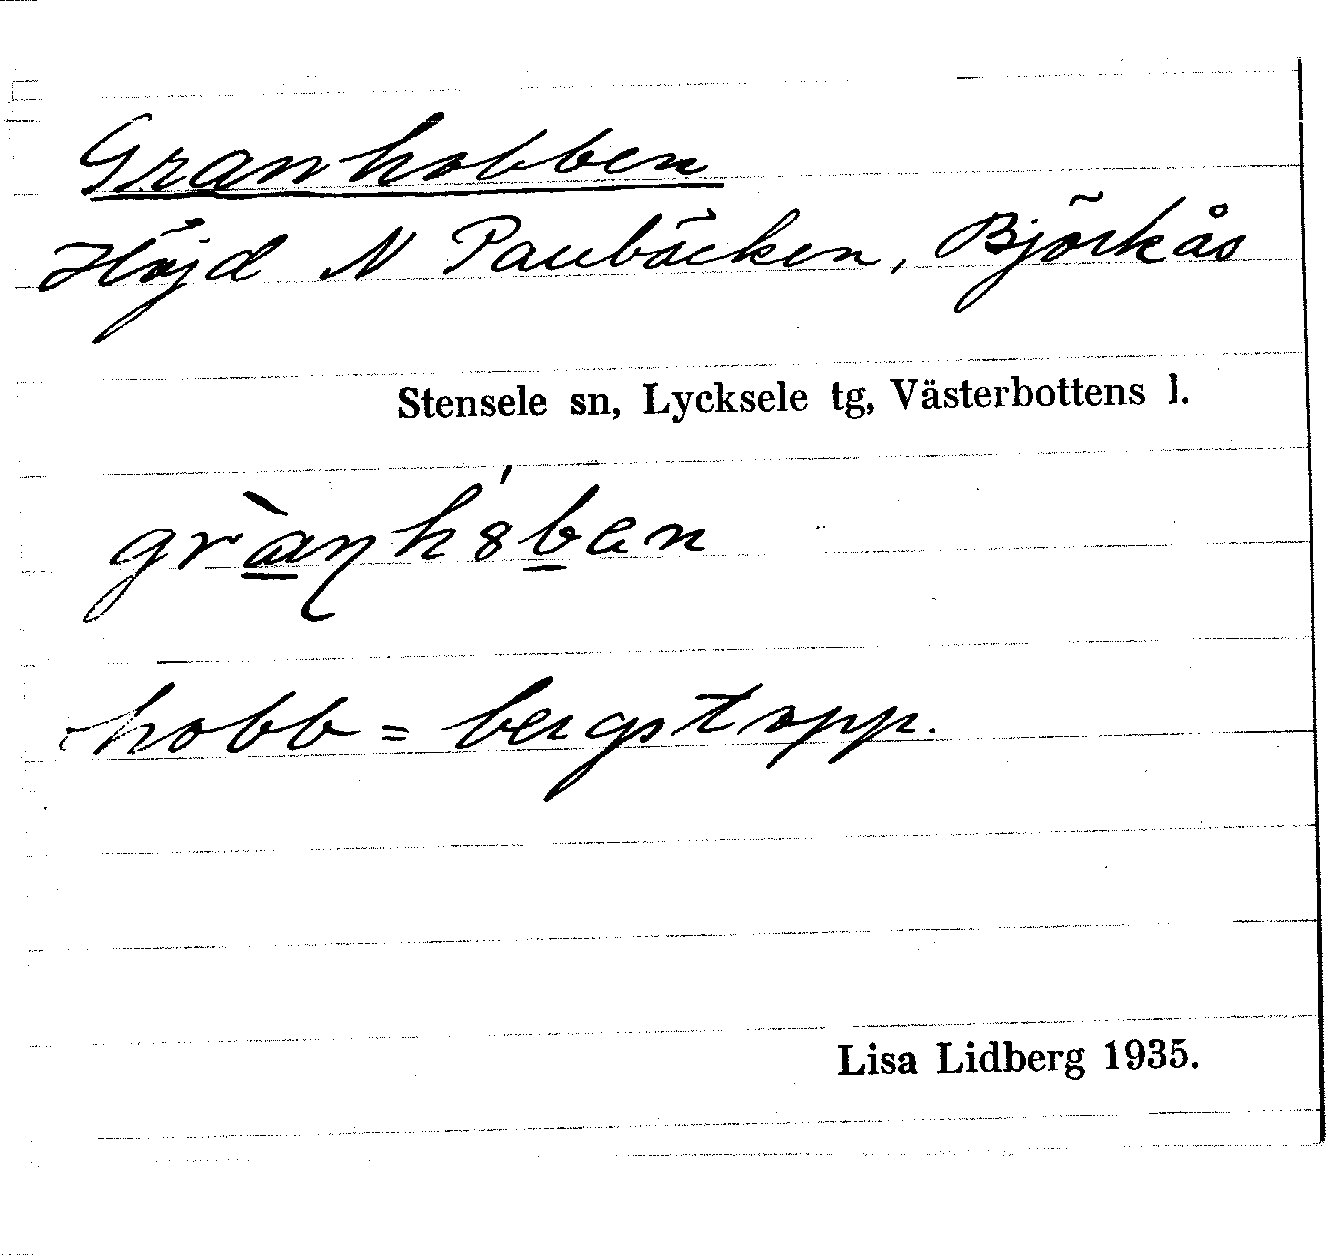 Granhobben
Höjd N Paubäcken, Björkås
Stensele sn, Lycksele tg, Västerbottens l.
hobb = bergstopp.
Lisa Lidberg 1935.